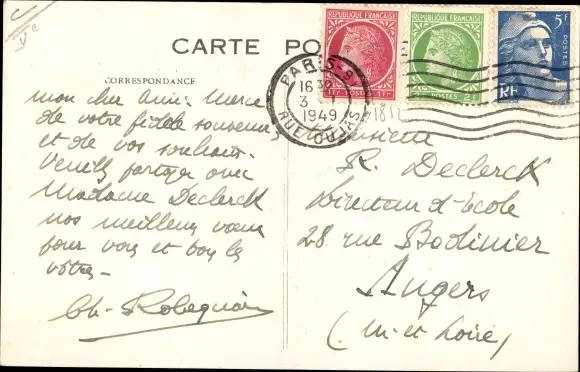 Ve
CARTE PO
CORRESPONDANCE
REPUBLIQUE FRANÇAISE
1F POSTES 1F
REPUBLIQUE FRANÇAISE
POSTES 2F
5F
RF
PARIS
16
3
1949
Mon cher ami. Merci
de votre fidèle souvenir
et de vos souhaits.
Veuillez partager avec
Madame Declerck
nos meilleurs vœux
pour vous et tous les
vôtres.
Ch. Robequain
Monsieur
R. Declerck
Directeur d'Ecole
28 rue Bodinier
Angers
(M. et Loire)